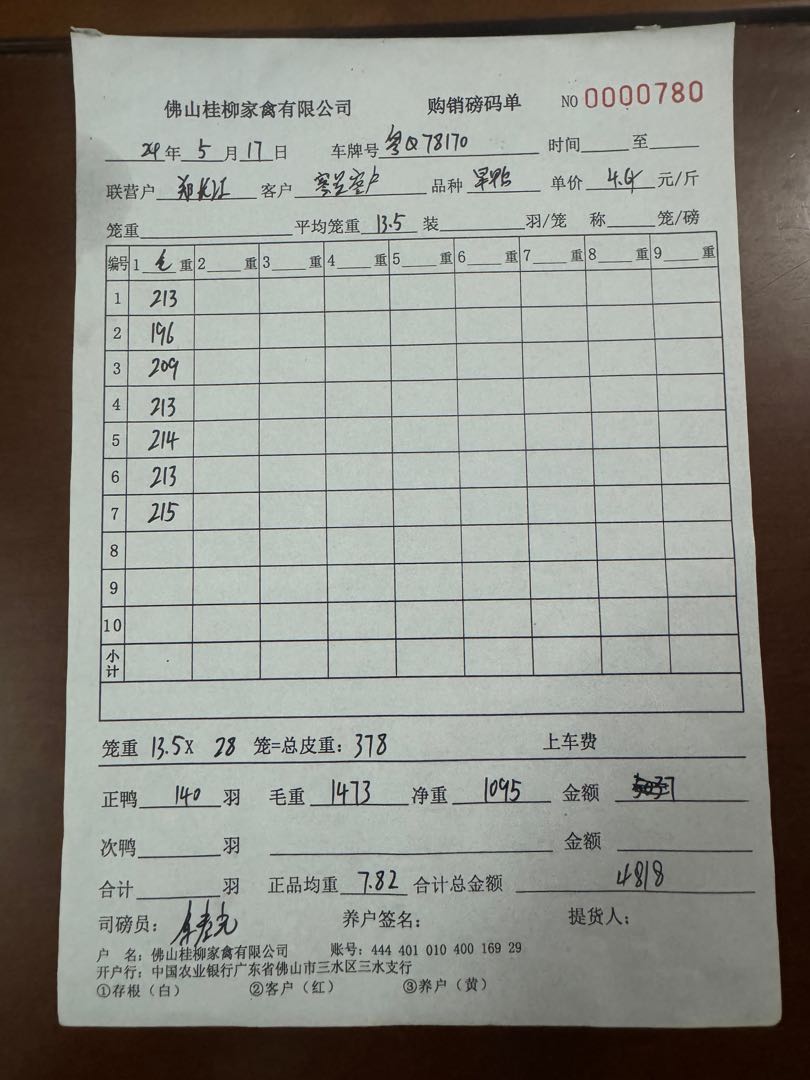 佛山桂柳家禽有限公司 购销磅码单 NO 0000780
24年 5月 17日 车牌号 粤Q78170 时间 至
联营户 客户 品种 单价 4.4 元/斤
笼重 平均笼重 13.5 装 羽/笼 称 笼/磅
编号 1 毛 重 2 重 3 重 4 重 5 重 6 重 7 重 8 重 9 重
1 213
2 196
3 209
4 213
5 214
6 213
7 215
8
9
10
小计
笼重 13.5X 28 笼=总皮重: 378 上车费
正鸭 140 羽 毛重 1473 净重 1095 金额
次鸭 羽 金额
合计 羽 正品均重 7.82 合计总金额 4818
司磅员: 养户签名: 提货人:
户 名: 佛山桂柳家禽有限公司 账号: 444 401 010 400 169 29
开户行: 中国农业银行广东省佛山市三水区三水支行
①存根(白) ②客户(红) ③养户(黄)